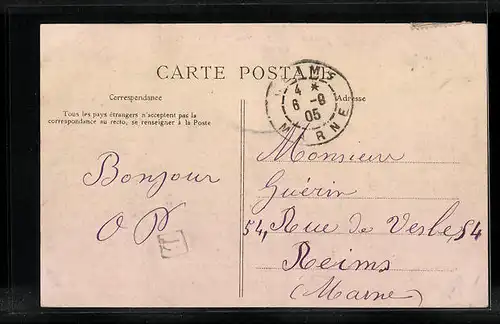 CARTE POSTALE
Correspondance
Tous les pays étrangers n'acceptent pas la
correspondance au recto, se renseigner à la Poste
Adresse
REIMS
4 *
6 - 9
05
MARNE
Bonjour
O P
T
Monsieur
Guérin
54, Rue de Vesle, 54
Reims
(Marne)